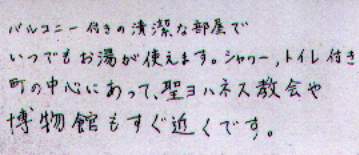 バルコニー付きの清潔な部屋で
いつでもお湯が使えます。シャワー,トイレ付き
町の中心にあって、聖ヨハネス教会や
博物館もすぐ近くです。